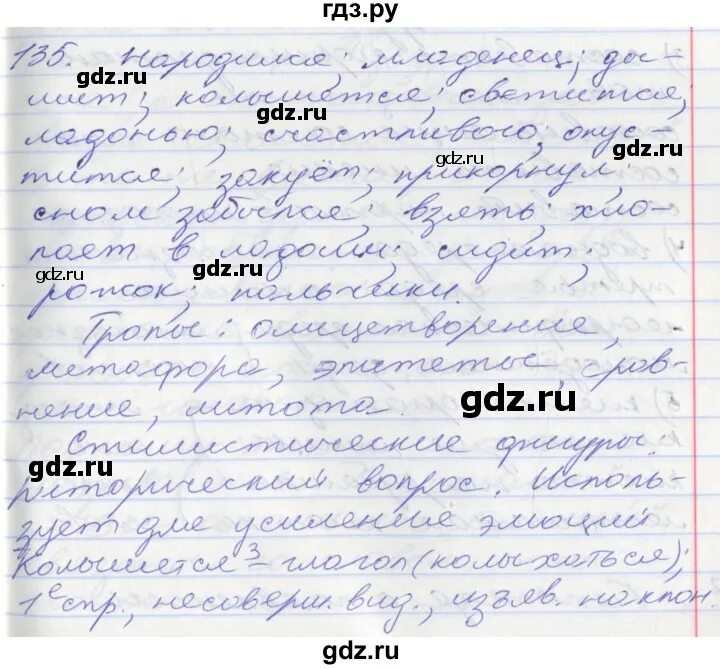 гдз.ру
135. Народился; младенец; ды-
gdz.ru
gdz.ru
мит; колышется; светится;
gdz.ru
ладонью; счастливого; опус-
gdz.ru
тится; закуёт; прикорнул,
gdz.ru
сном забылся; взять; хло-
пает в ладоши; сидит;
gdz.ru
gdz.ru
рожок; пальчики.
Тропы: олицетворение,
метафора, эпитеты, срав-
нение, литота.
gdz.ru
Стилистические фигуры:
gdz.ru
риторический вопрос. Исполь-
gdz.ru
зует для усиления эмоций.
Колышется³ – глагол (колыхаться);
1е спр., несоверш. вид., изъяв. наклон.
gdz.ru